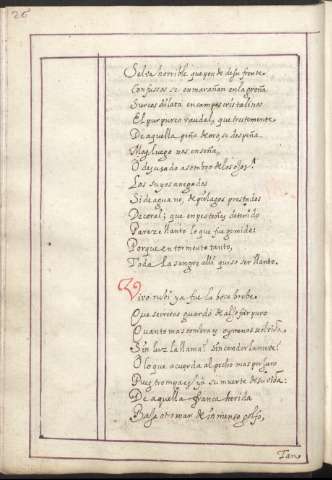 26
Selva horrible que pende de su frente
Confussas se enmarañan en la greña
Surcas dilata en campos cristalinos
El purpureo raudal, que tristemente
De aquella peña de oro, se despeña
Mas luego nos enseña,
O desagado asombro de los ojos!
Los suyos anegados
Si de agua no, de pielagos prestados
De coral; que en pestañas detenido
Pareze llanto lo que fue gemido
Porque en tormento tanto,
Toda la sangre alli quiso ser llanto.
Vivo rubi ya fue la boca breve
Que secretos guardó de aljofar puro
Quanto mas sombra y
Sin luz la llama! sin candor la nieve!
O lo que acuerda al pecho mas perjuro
Pues trompa es ya su muerte de su vida
De aquella franca herida
Baja otro mar de inmenso golfo,
Tan